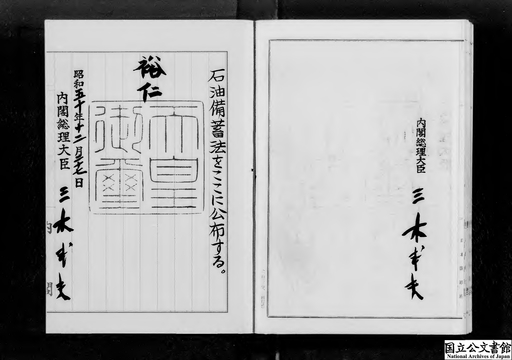 内閣総理大臣
三木武夫
石油備蓄法をここに公布する。
裕仁
天皇御璽
昭和五十年十二月二十七日
内閣総理大臣 三木武夫
内閣
国立公文書館
National Archives of Japan